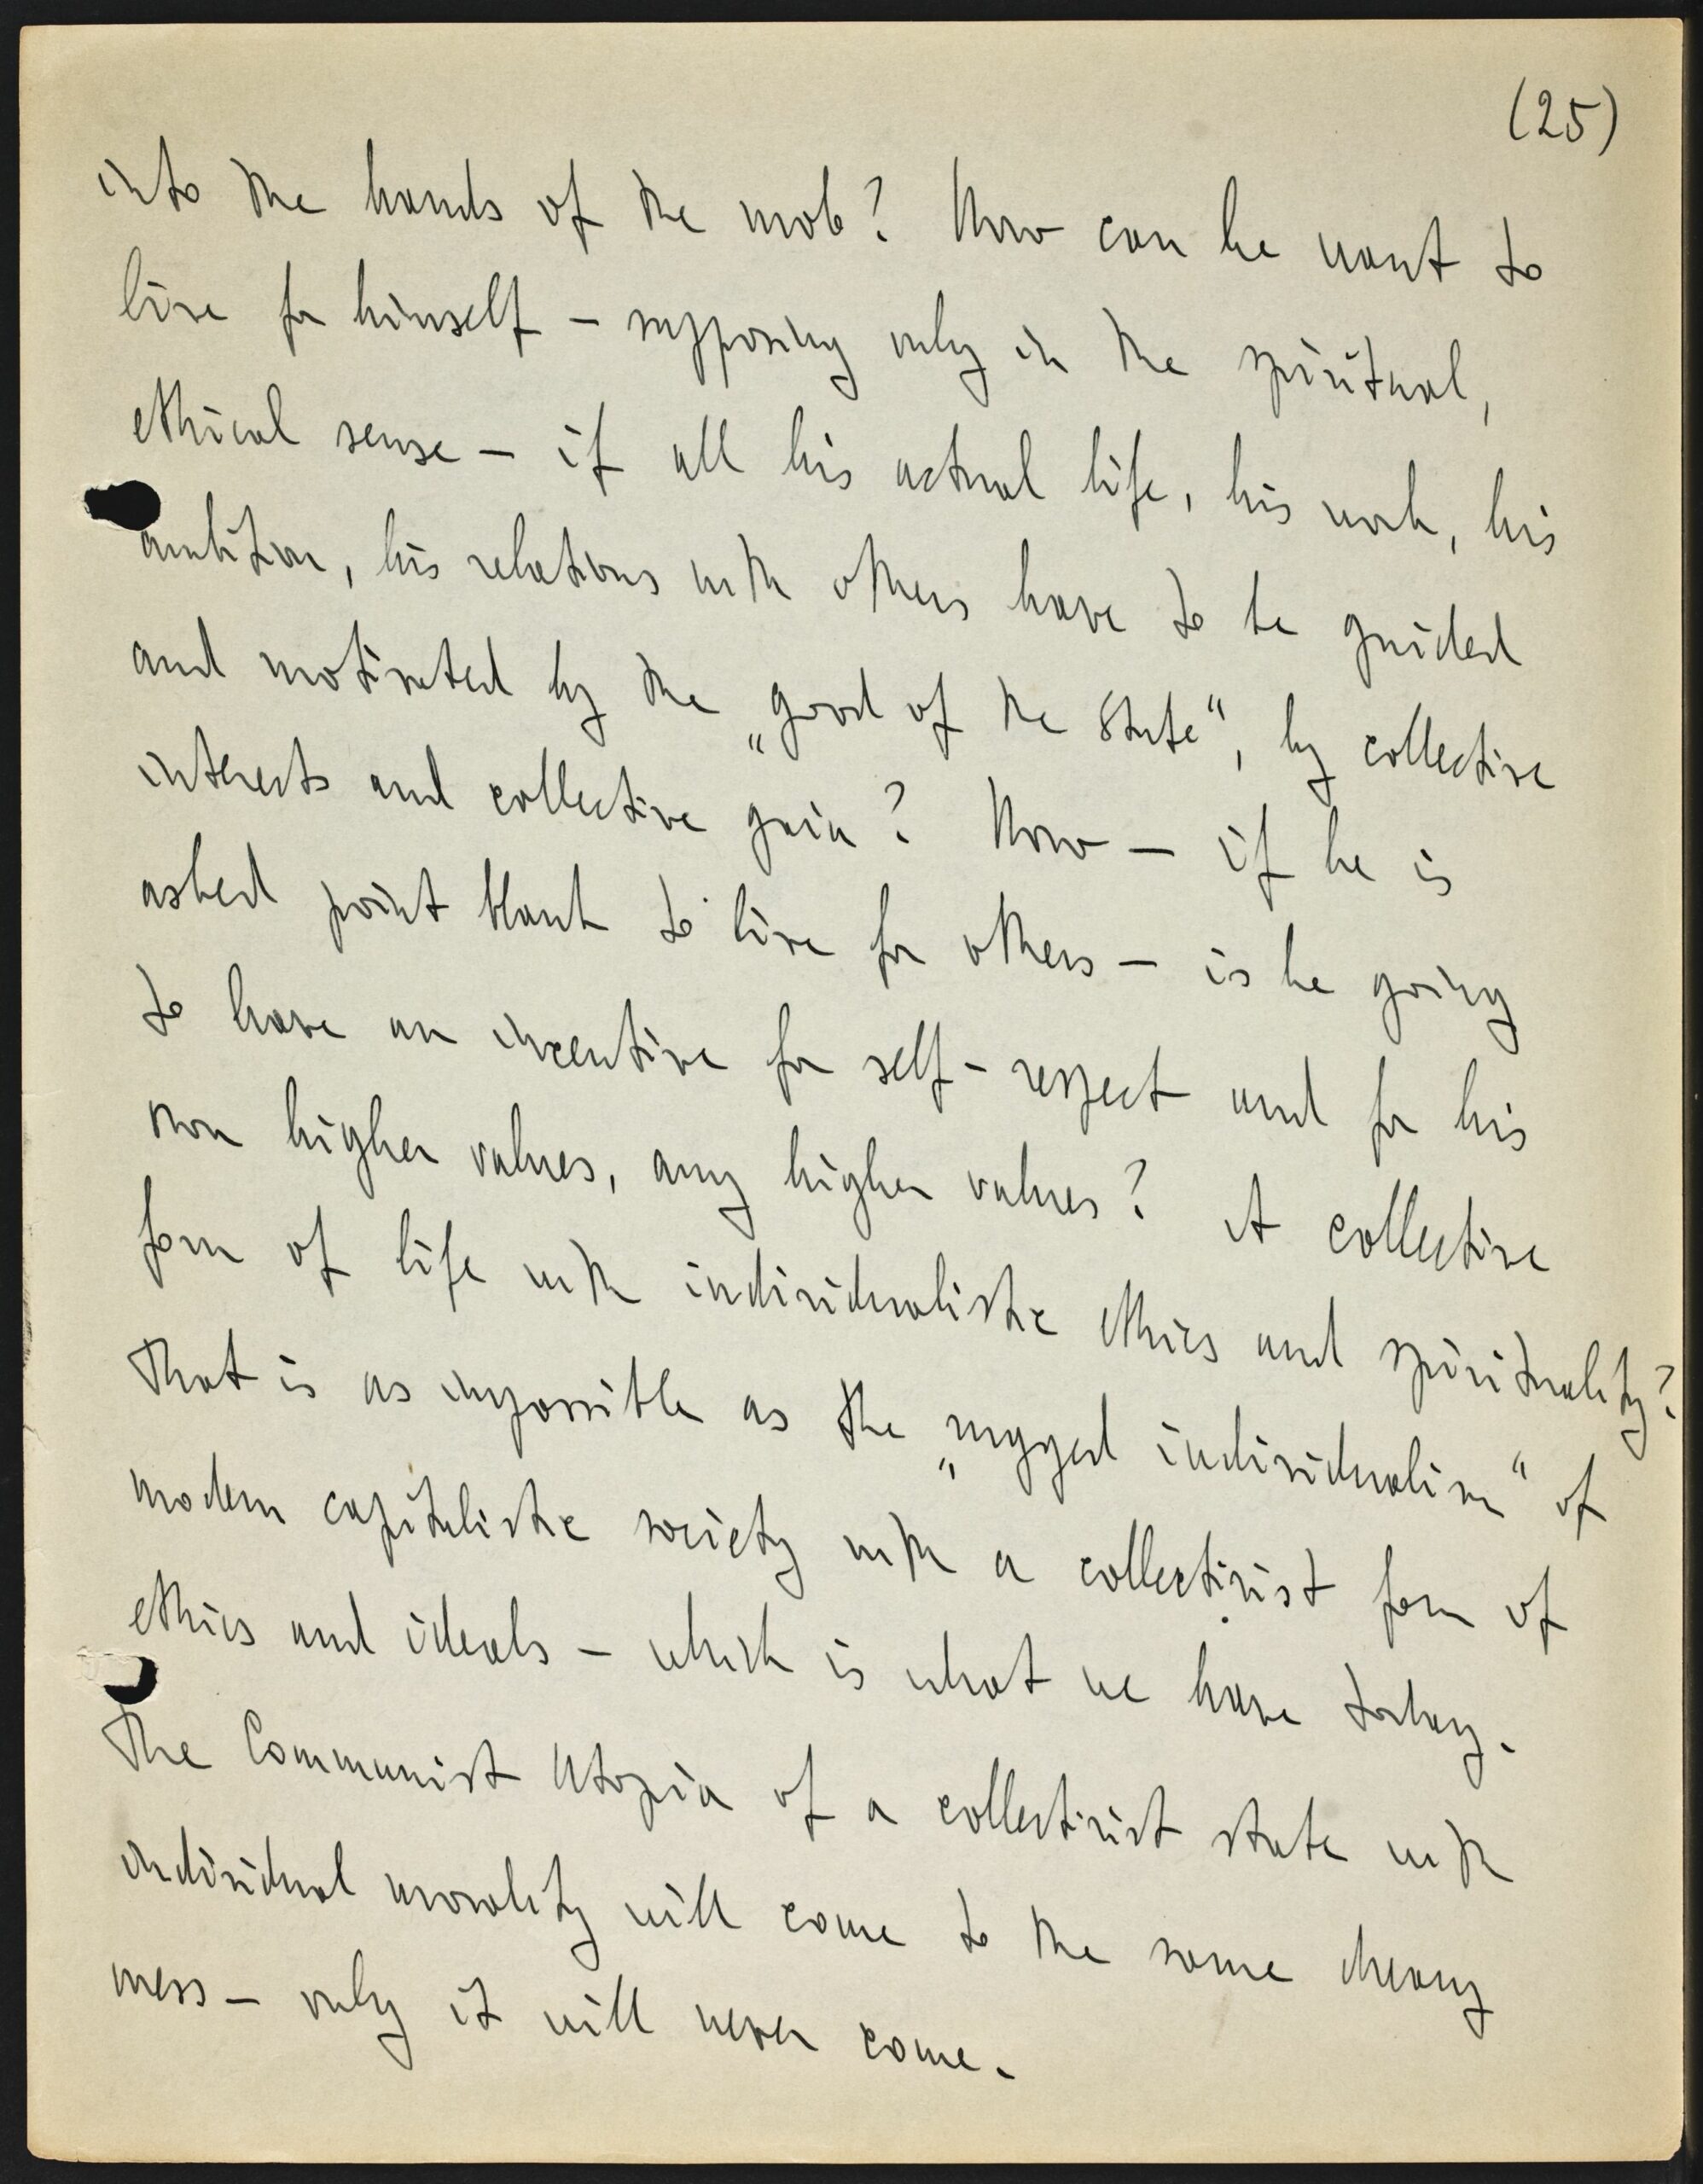 (25)
into the hands of the mob? How can he want to
live for himself – supposing only in the spiritual,
ethical sense – if all his actual life, his work, his
ambition, his relations with others have to be guided
and motivated by the „good of the State“, by collective
interests and collective gain? How – if he is
asked point blank to live for others – is he going
to have an incentive for self-respect and for his
own higher values, any higher values? A collective
form of life with individualistic ethics and spirituality?
That is as impossible as the „rugged individualism“ of
modern capitalistic society with a collectivist form of
ethics and ideals – which is what we have today.
The Communist Utopia of a collectivist state with
individual morality will come to the same dreary
mess – only it will never come.